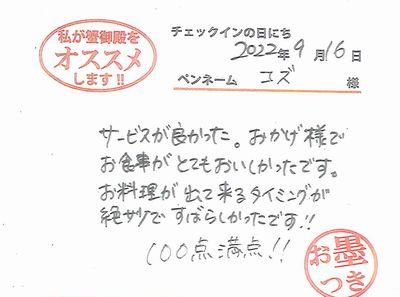 私が蟹御殿を
オススメ
します!!
チェックインの日にち
2022年9月16日
ペンネーム コズ 様
サービスが良かった。おかげ様で
お食事がとてもおいしかったです。
お料理が出て来るタイミングが
絶妙ですばらしかったです!!
100点満点!!
お墨
つき